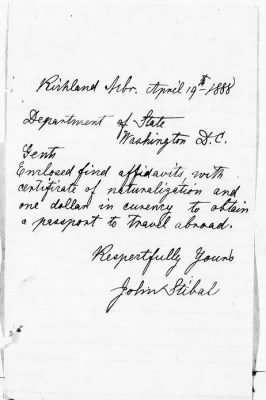 Kirkland Nbr. April 19th 1888
Department of State
Washington D.C.
Gents
Enclosed find affidavits, with
certificate of naturalization and
one dollar in curency to obtain
a passport to travel abroad.
Respertfully Yours
John Stibal